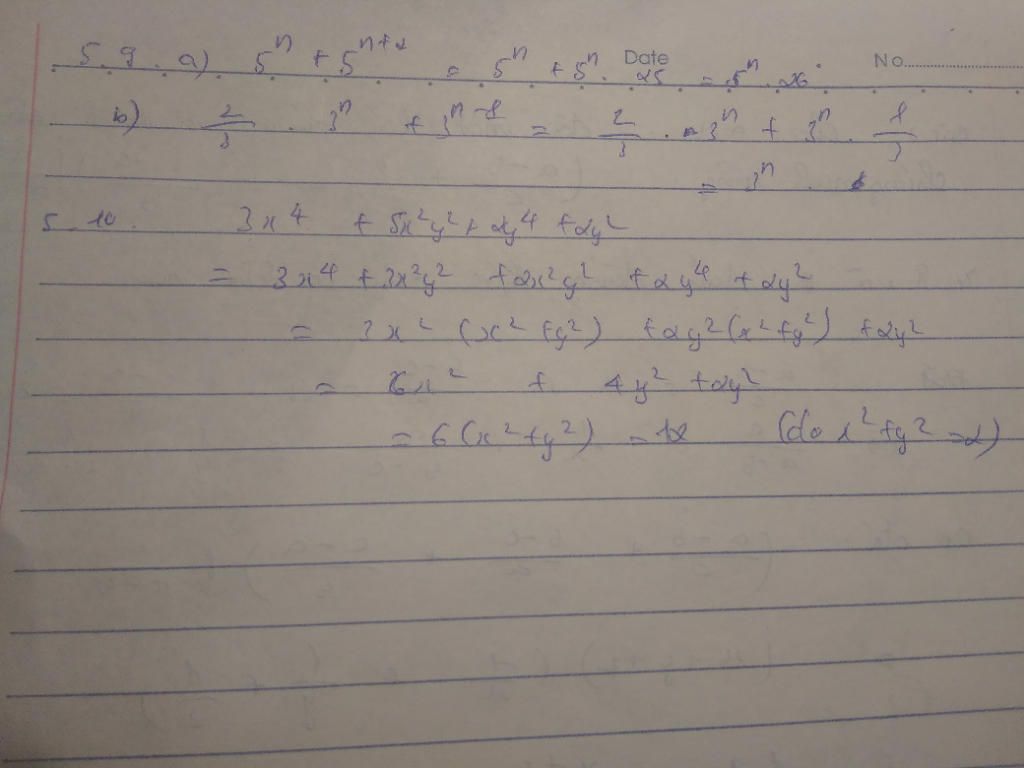 Date No.
5.9. a) 5^n + 5^{n+2} = 5^n + 5^n . 25 = 5^n . 26
b) 2/3 . 3^n + 3^{n-1} = 2/3 . 3^n + 3^n . 1/3
= 3^n .
5.10. 3x^4 + 5x^2y^2 + 2y^4 + 2y^2
= 3x^4 + 3x^2y^2 + 2x^2y^2 + 2y^4 + 2y^2
= 3x^2 (x^2 + y^2) + 2y^2 (x^2 + y^2) + 2y^2
= 6x^2 + 4y^2 + 2y^2
= 6 (x^2 + y^2) = 12 (do x^2 + y^2 = 2)